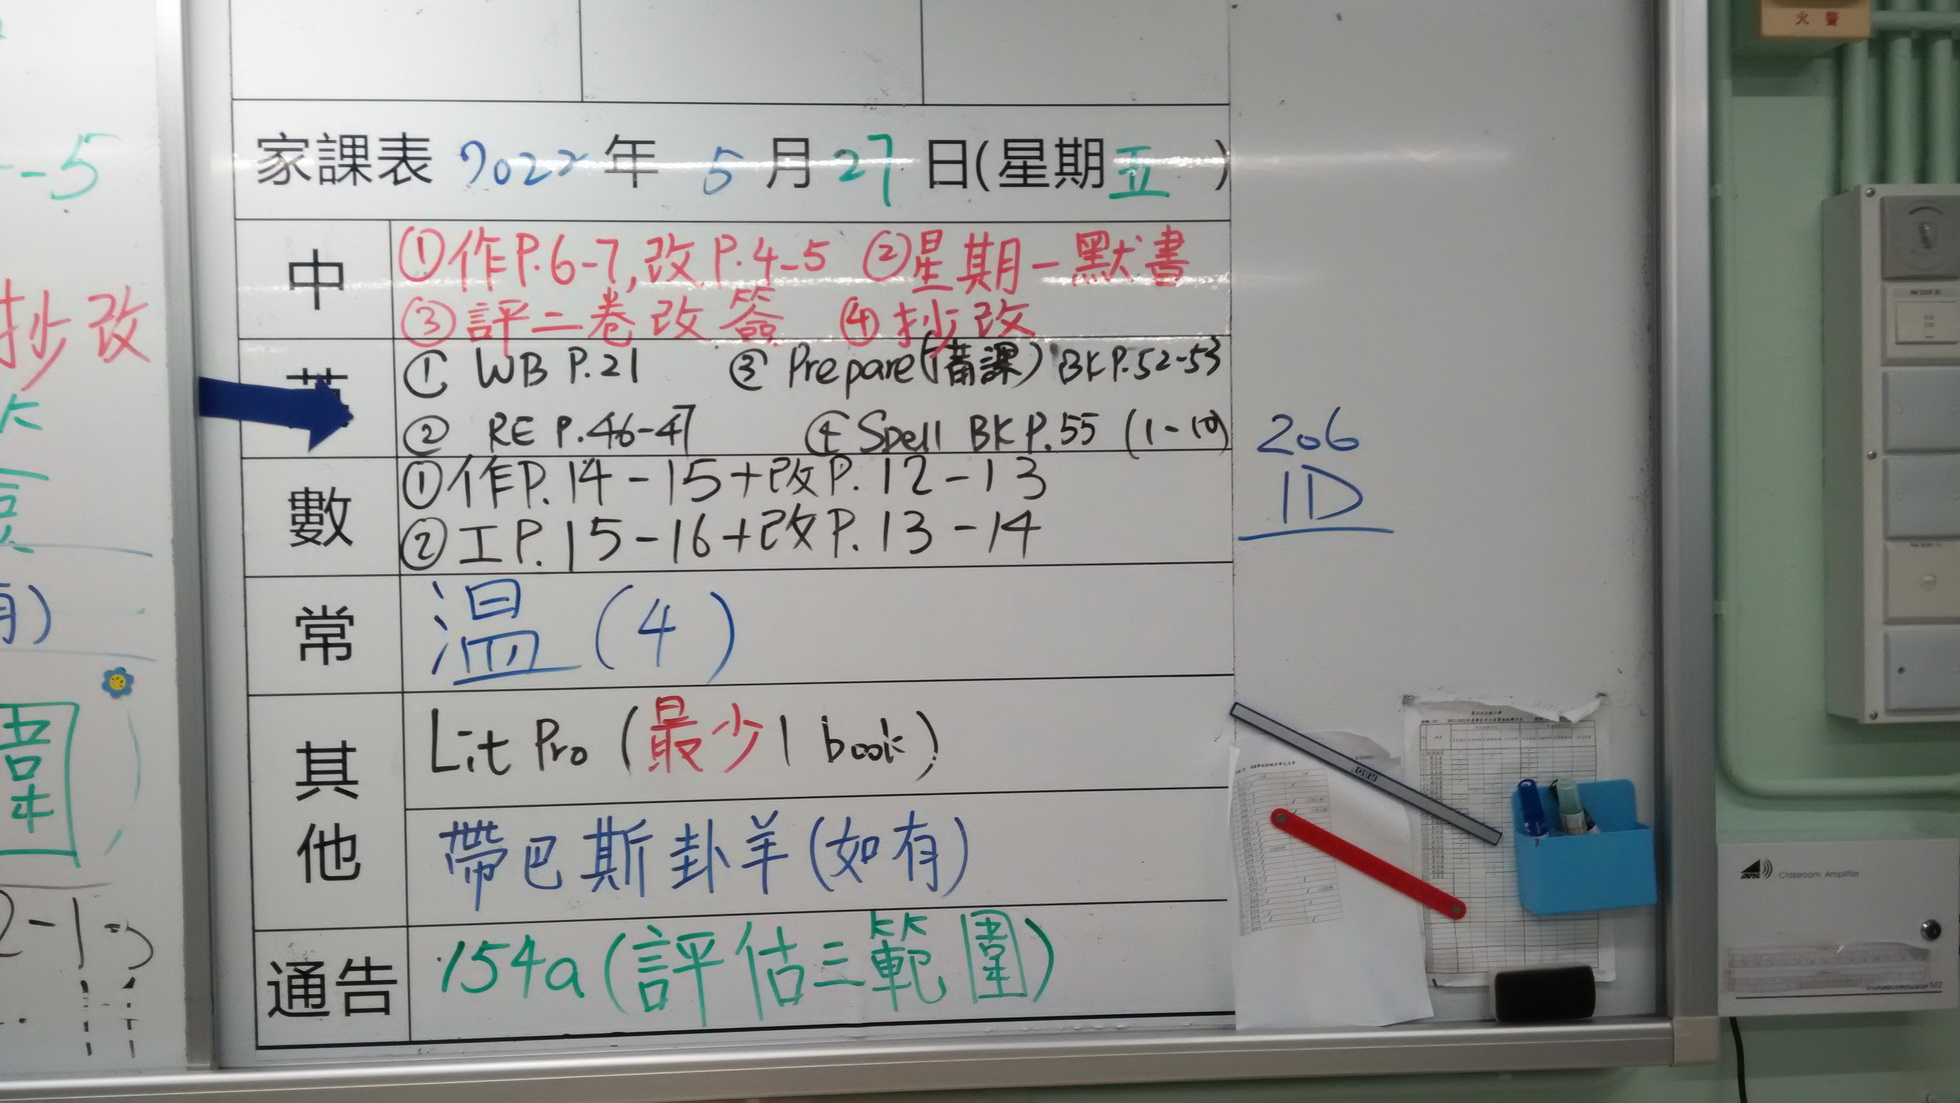 火警
家課表 2022年 5月27日(星期五)
中
①作P.6-7,改P.4-5 ②星期一默書
③評二卷改簽 ④抄改
① WB P.21 ③ Prepare(備課) BK P.52-53
② RE P.46-47 ④ Spell BK P.55 (1-10)
數
①作P.14-15+改P.12-13
②工P.15-16+改P.13-14
常
温(4)
其他
Lit Pro (最少1 book)
帶巴斯卦羊(如有)
通告
154a(評估三範圍)
206
1D
--5
抄改
2-13
Classroom Amplifier
M2